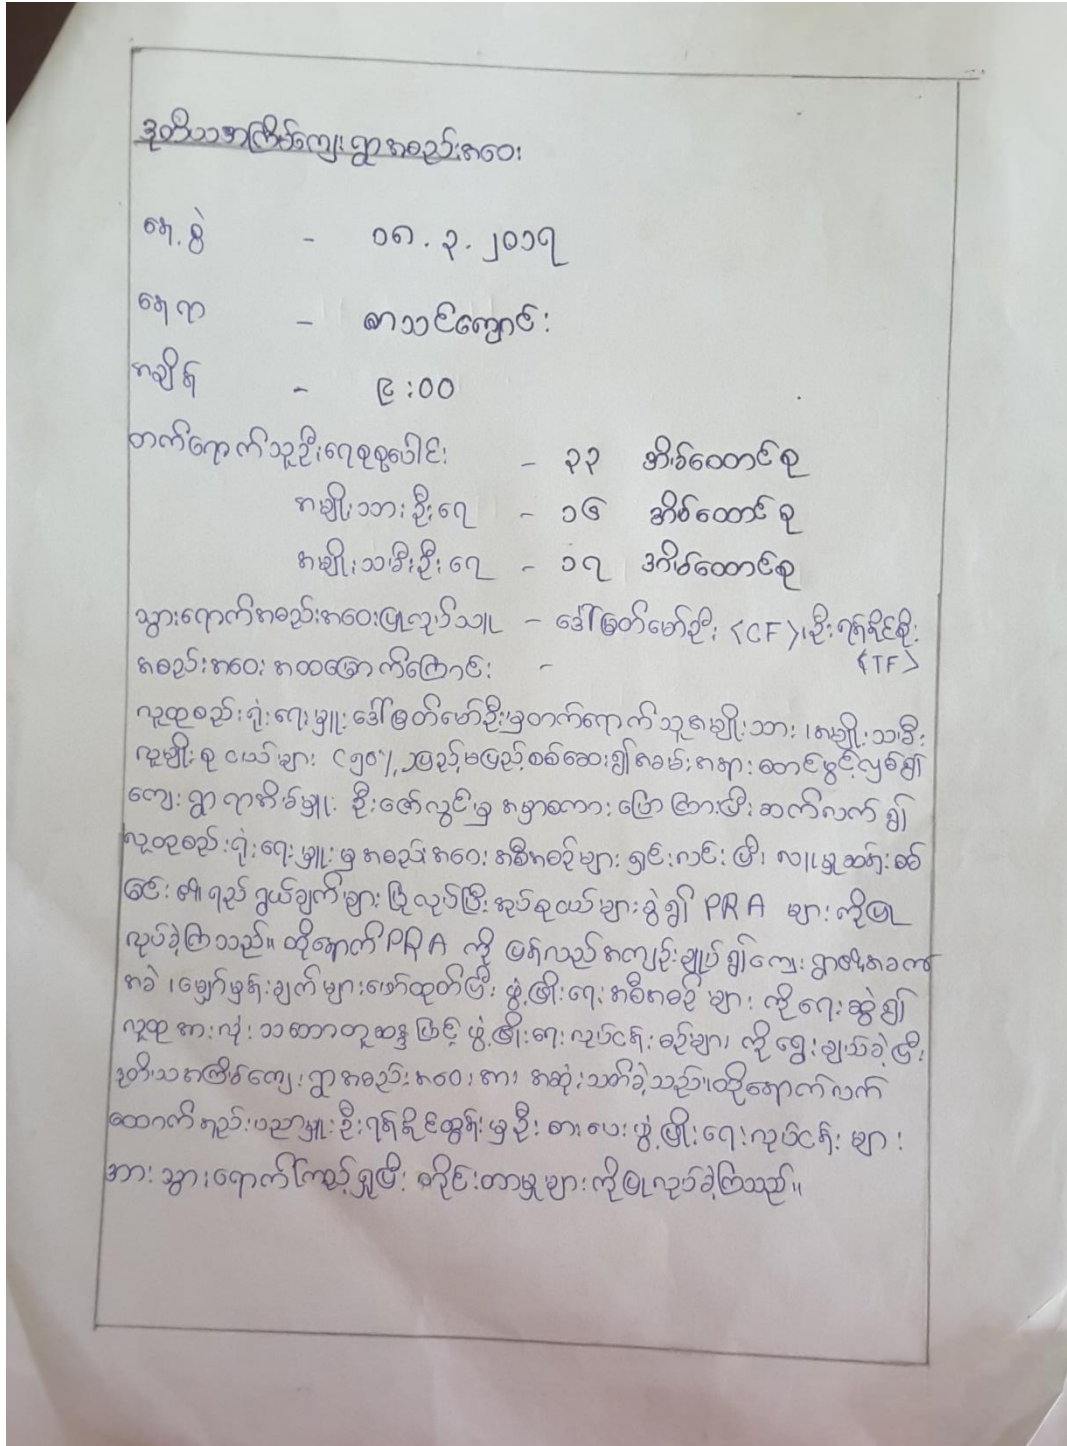 ဒုတိယအကြိမ်ကျေးရွာအစည်းအဝေး
နေ့စွဲ - ၁၈.၃.၂၀၁၇
နေရာ - စာသင်ကျောင်း
အချိန် - ၉:၀၀
တက်ရောက်သူဦးရေစုစုပေါင်း - ၃၃ အိမ်ထောင်စု
အမျိုးသားဦးရေ - ၁၆ အိမ်ထောင်စု
အမျိုးသမီးဦးရေ - ၁၇ အိမ်ထောင်စု
သွားရောက်အစည်းအဝေးပြုလုပ်သူ - ဒေါ်မြတ်မော်ဦး <CF>၊ ဦးရန်နိုင်စိုး
<TF>
အစည်းအဝေးအထမြောက်ကြောင်း -
လူထုစည်းရုံးရေးမှူးဒေါ်မြတ်မော်ဦးမှတက်ရောက်သူအမျိုးသား၊အမျိုးသမီး
လူမျိုးစုငယ်များ (၅၀%)ပြည့်မပြည့်စစ်ဆေး၍အခမ်းအနားစတင်ဖွင့်လှစ်၍
ကျေးရွာရာအိမ်မှူး ဦးဇော်လွင်မှ အမှာစကားပြောကြားပြီးဆက်လက်၍
လူထုစည်းရုံးရေးမှူးမှအစည်းအဝေးအစီအစဉ်များရှင်းလင်းပြီး လူမှုဆန်းစစ်
ခြင်း၏ရည်ရွယ်ချက်များပြုလုပ်ပြီးအုပ်စုငယ်များခွဲ၍ PRA များကိုပြု
လုပ်ခဲ့ကြသည်။ ထို့နောက်PRA ကို ပြန်လည်အကျဉ်းချုပ်၍ကျေးရွာ၏အခက်
အခဲ ၊မျှော်မှန်းချက်များဖော်ထုတ်ပြီး ဖွံ့ဖြိုးရေးအစီအစဉ်များကိုရေးဆွဲ၍
လူထုအားလုံးသဘောတူဆန္ဒဖြင့် ဖွံ့ဖြိုးရေးလုပ်ငန်းစဉ်များကိုရွေးချယ်ခဲ့ပြီး
ဒုတိယအကြိမ်ကျေးရွာအစည်းအဝေးအား အဆုံးသတ်ခဲ့သည်။ထို့နောက်လက်
ထောက်နည်းပညာမှူးဦးရန်နိုင်ထွန်းမှဦးစားပေးဖွံ့ဖြိုးရေးလုပ်ငန်းများ
အားသွားရောက်ကြည့်ရှုပြီး တိုင်းတာမှုများကိုပြုလုပ်ခဲ့ကြသည်။